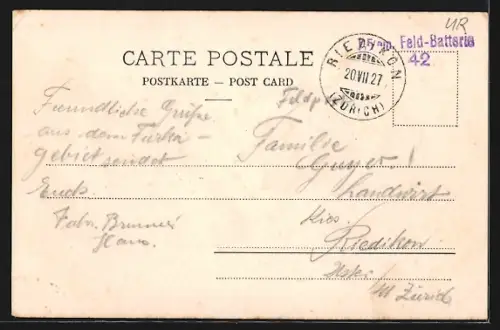 UR
Feld-Batterie
42
CARTE POSTALE
POSTKARTE – POST CARD
RIEDIKON
20.VII.27
(ZÜRICH)
Feldp
Freundliche Grüsse
aus dem Furka-
gebiet sendet
Euch
Brunner
Hans.
Familie
Gujer
Landwirt
Riedikon
Uster
Kt Zürich